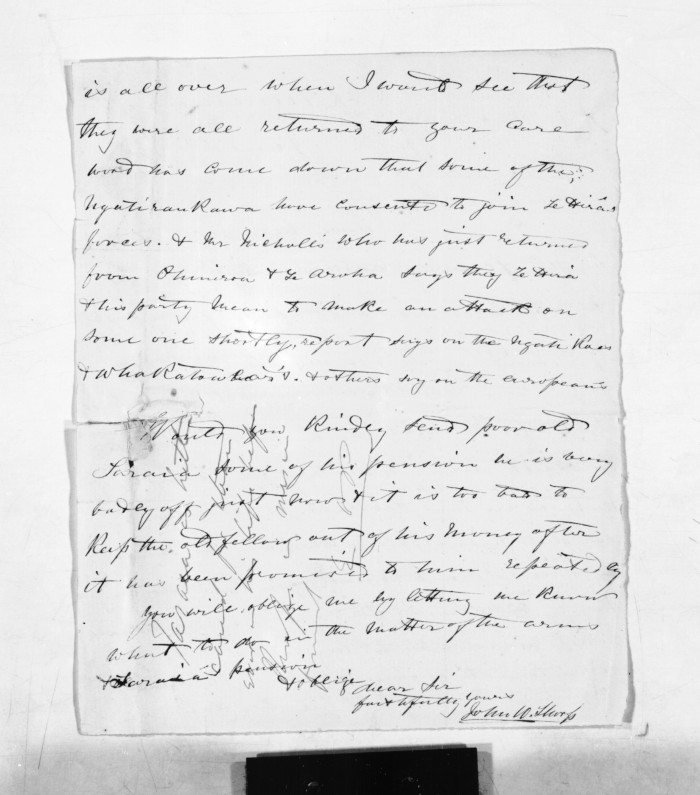 is all over when I would see that
they were all returned to your care
word has come down that some of the
Ngatiraukawa have consented to join Te Hira's
forces. & Mr Nicholls who has just returned
from Ohinira & Te Aroha says they Te Hira
& his party mean to make an attack on
some one shortly, report says on the Ngati Paoa
& Whakatowhais. & others say on the europeans
Would you kindly send poor old
Taraia some of his pension he is very
badly off just now & it is too bad to
keep the old fellow out of his money after
it has been promised to him repeatedly
You will oblige me by letting me know
what to do in the matter of the arms
& Taraia's pension
& oblige dear Sir
faithfully yours
John W. Thorp